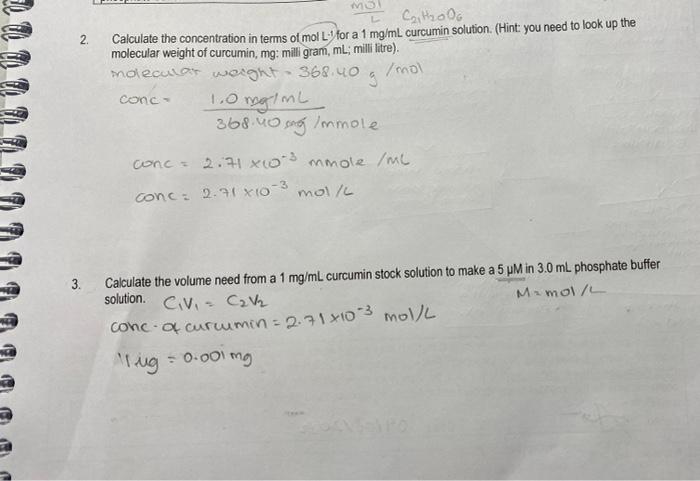 mol
L C21H20O6
2. Calculate the concentration in terms of mol L-1 for a 1 mg/mL curcumin solution. (Hint: you need to look up the
molecular weight of curcumin, mg: milli gram, mL; milli litre).
molecular weight = 368.40 g /mol
conc = 1.0 mg/mL
368.40 mg /mmole
conc = 2.71 x10-3 mmole /mL
conc = 2.71 x10-3 mol /L
3. Calculate the volume need from a 1 mg/mL curcumin stock solution to make a 5 µM in 3.0 mL phosphate buffer
solution. C1V1 = C2V2 M = mol /L
conc. of curcumin = 2.71 x10-3 mol/L
1 ug = 0.001 mg